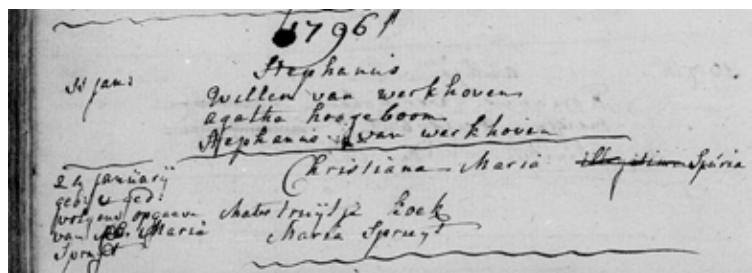 1796
Jan:
Stephanus
Willem van werkhoven
agatha hoogeboom
Stephanus van werkhoven
Christiana Maria illegitima Spuria
24 januarij
geb: & ged:
volgens opgaave
van Maria
Spruyt
Mater truytje hoek
Maria Spruyt